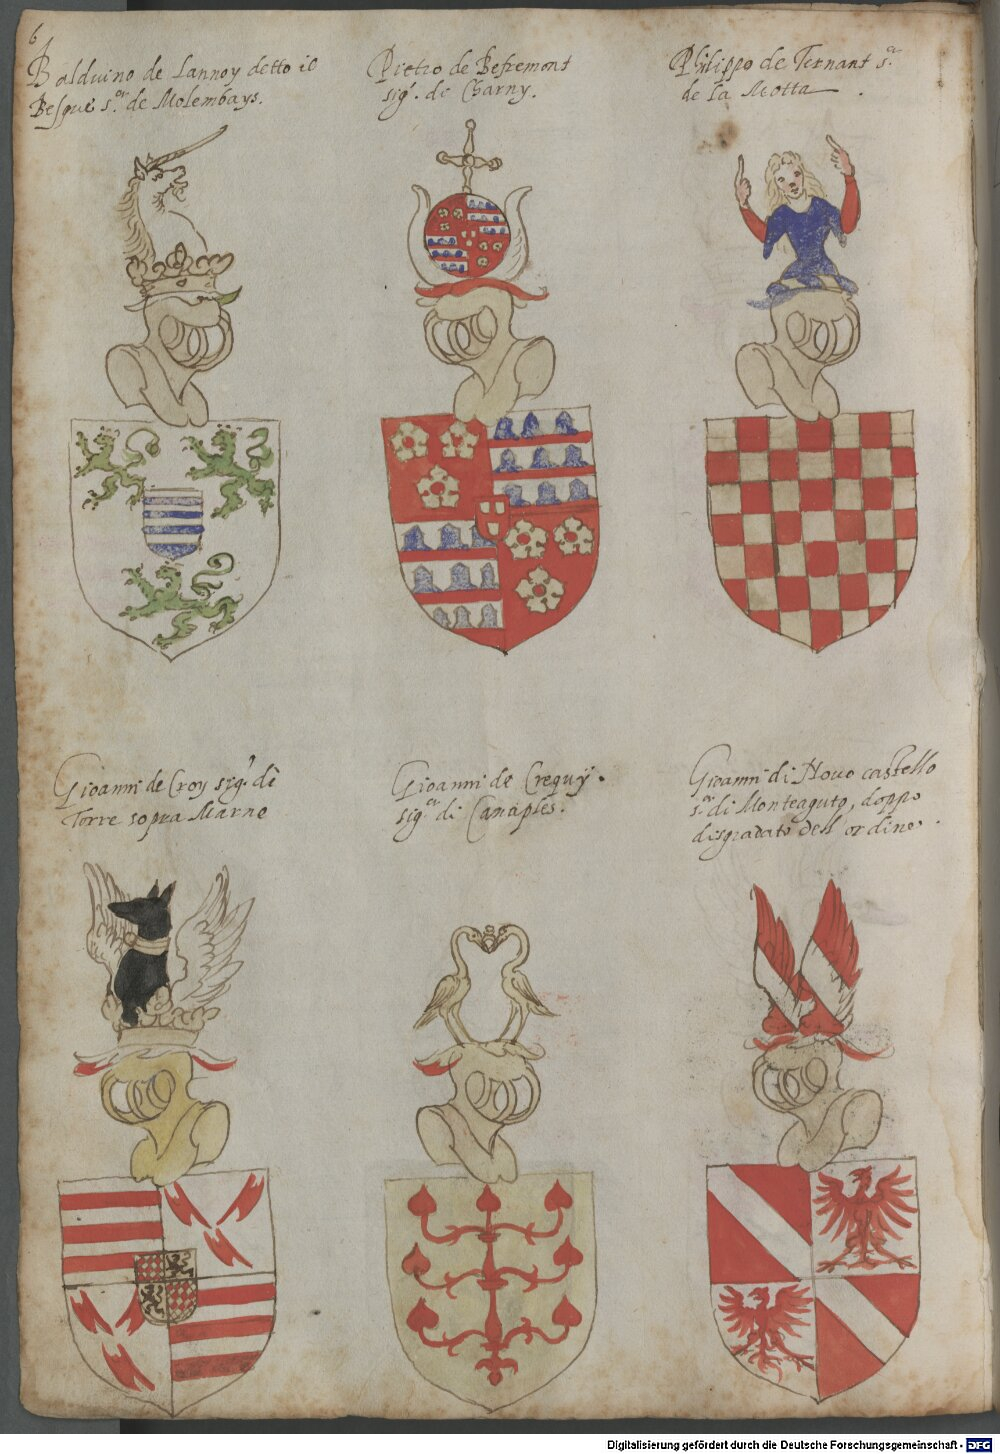 6
Balduino de Lannoy detto il
Besgue s.or de Molembays.
Pietro de Befremont
sig.r de Charny.
Philippo de Ternant s.or
de la Motta
Gioanni de Croy sig.r di
Torre sopra Marne
Gioanni de Crequÿ.
sig.or di Canaples.
Gioanni di Novo castello
s.or di Monteaguto, doppo
disgradato dell ordine.
Digitalisierung gefördert durch die Deutsche Forschungsgemeinschaft - DFG